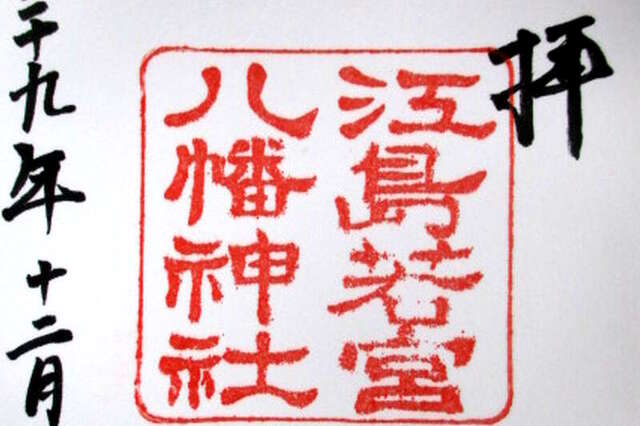 拝
江島若宮
八幡神社
二十九年十二月